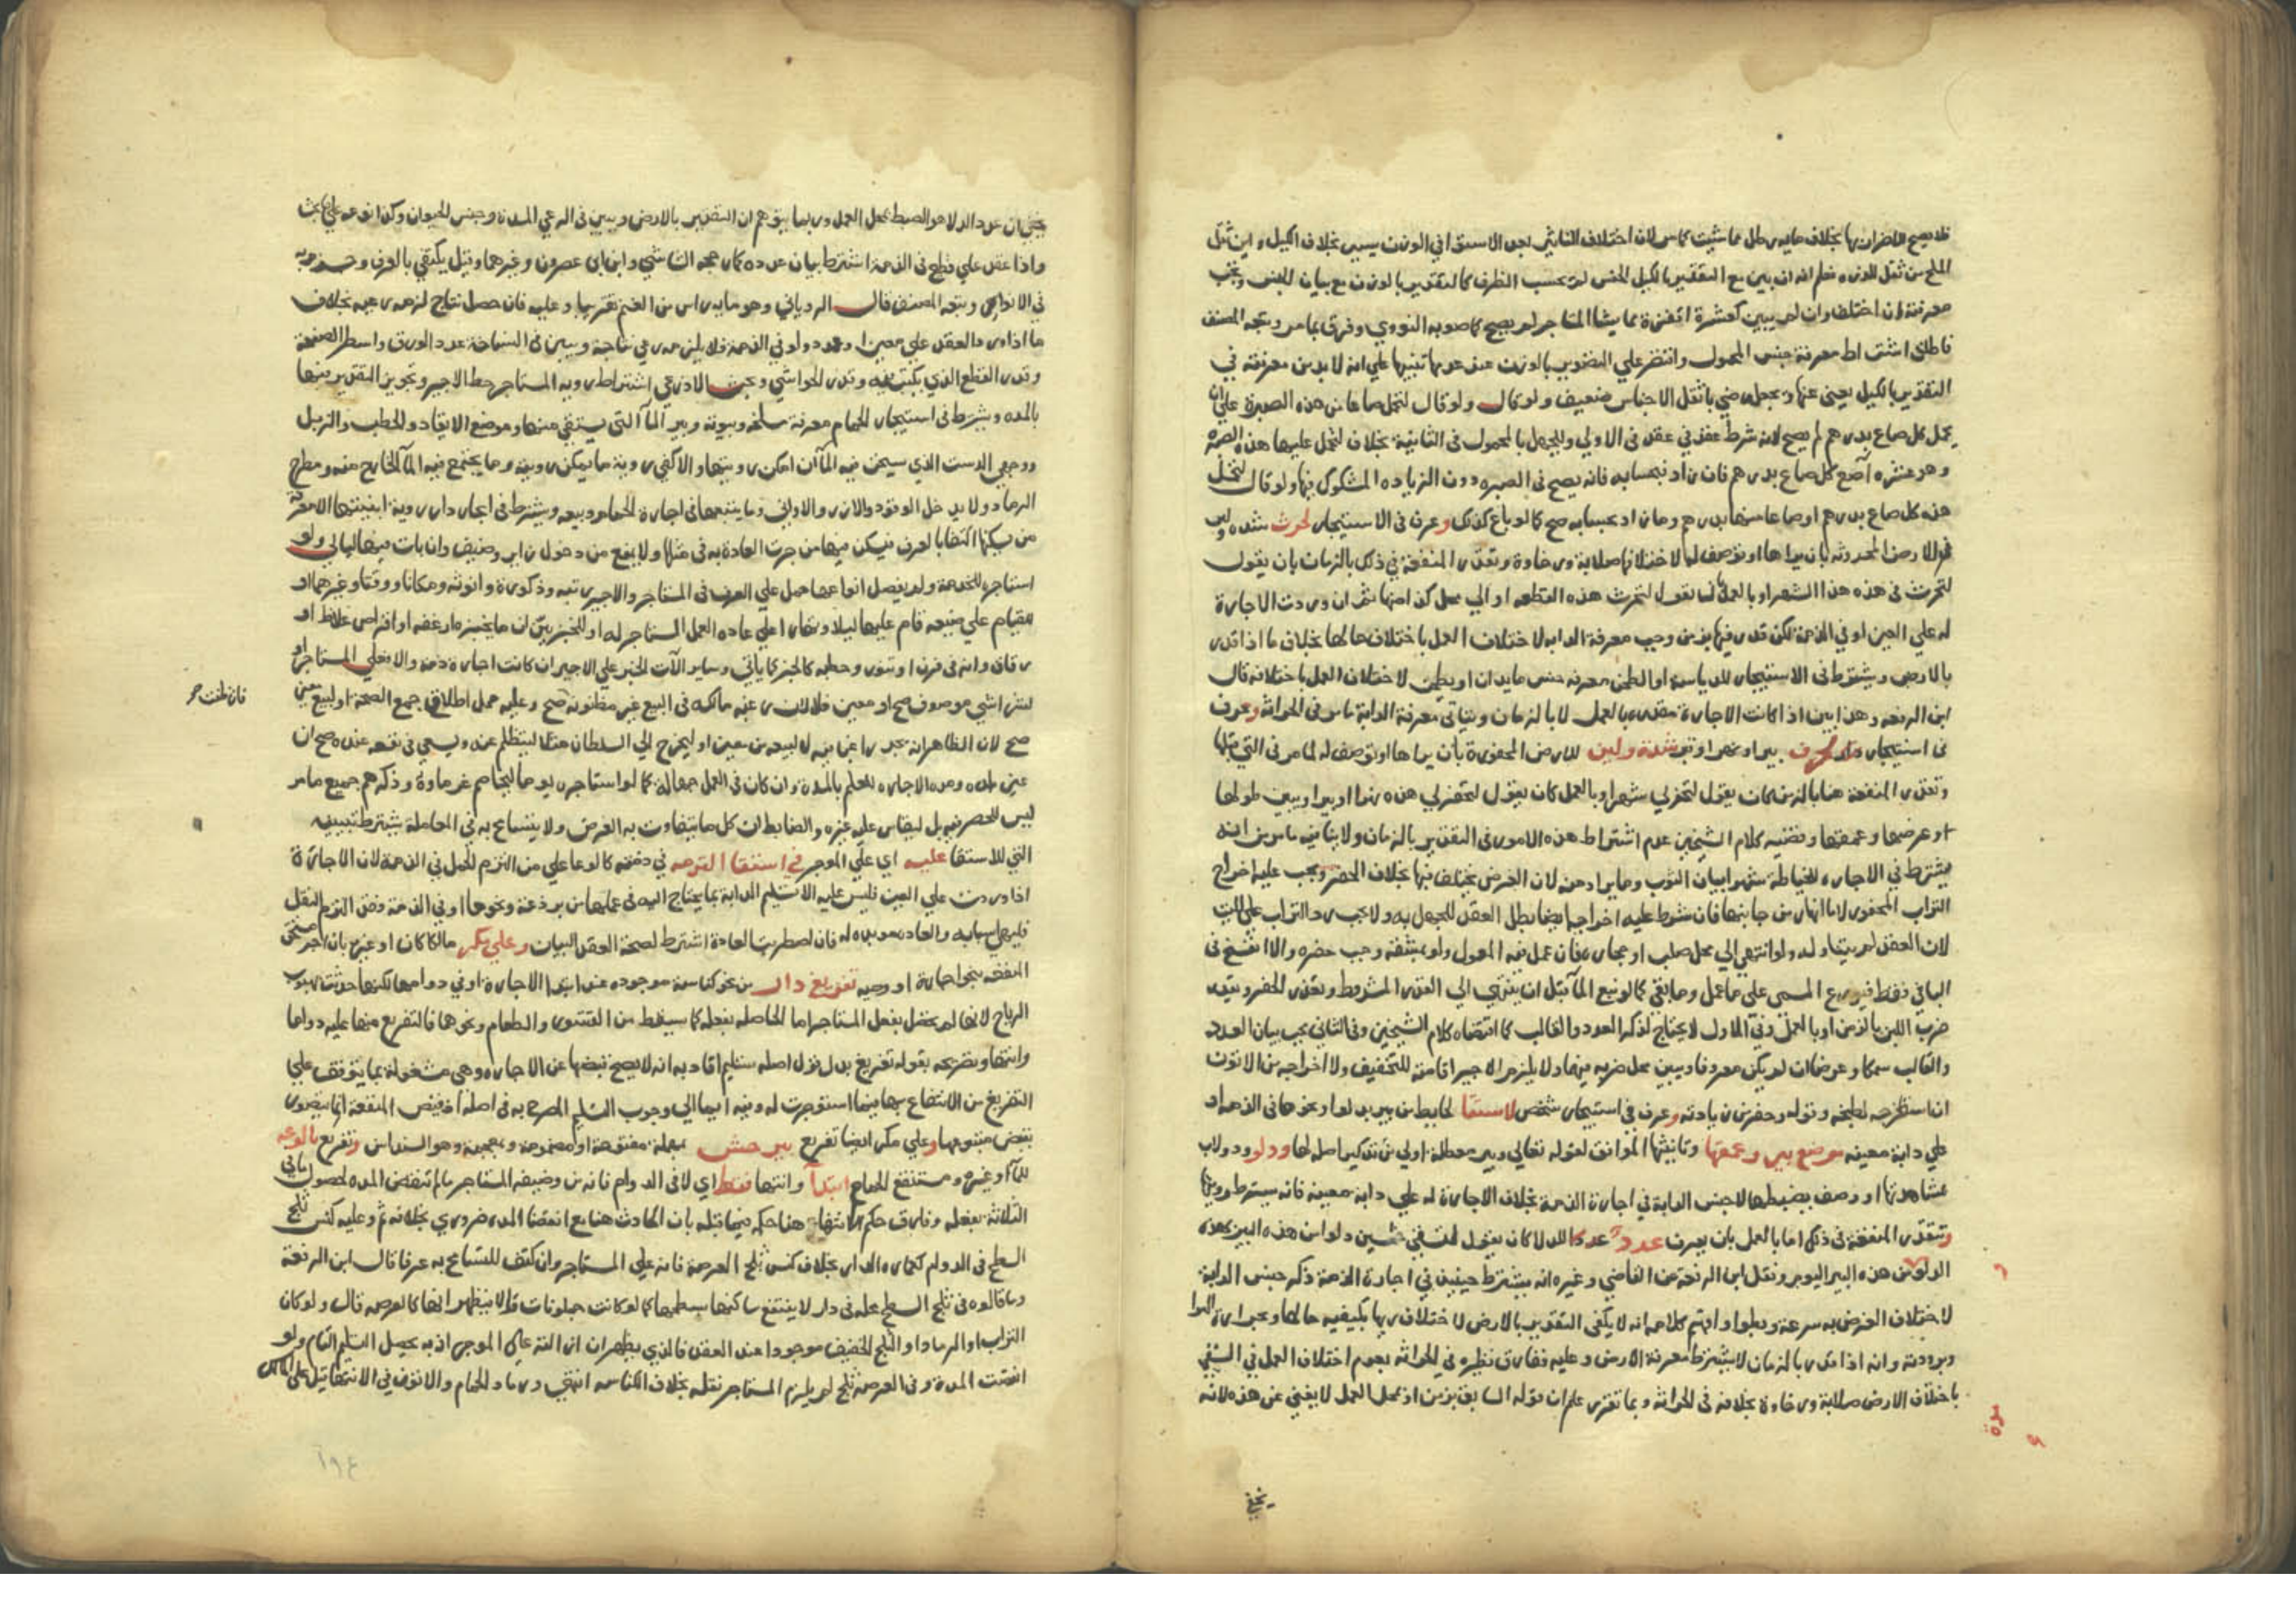 فلا يصح لاضرارها بخلاف مايه رطل مما شيت كما مر لان اختلاف التاثير بعد الاستوا في الوزن يسير بخلاف الكيل واين ثقل
الملح من ثقل الذره وعلم انه ان بين مع التقدير بالكيل الجنس لم يحسب الظرف كالتقدير بالوزن مع بيان الجنس ويجب
معرفته ان اختلف وان لم يبين كعشرة اقفزة مما يشا المستاجر لم يصح كما صوبه النووي وفرق بما مر ويتجه المصنف
فاطلق اشتراط معرفة جنس المحمول واقتصر علي التقدير بالوزن تنبيها علي انه لا بد من معرفته في
التقدير بالكيل يعني عنها ويجعل رضي باثقل الاجناس ضعيف ولو قال ولو قال لتحمل صاعا من هذه الصبرة علي ان
تحمل كل صاع بدرهم لم يصح لانه شرط عقد في عقد في الاولي وللجهل بالمحمول في الثانية بخلاف لتحمل عليها هذه الصبره
وهو عشره آصع كل صاع بدرهم فان زاد فبحسابه فانه يصح في الصبره دون الزياده المشكوك فيها ولو قال لتحمل
هذه كل صاع بدرهم او صاعا منها بدرهم وما زاد بحسابه صح كما لو باع كذلك وعرف في الاستيجار لحرث شده ولين
في الارض المحروثه بان يراها او توصف له لاختلافها صلابة ورخاوة وتقدر المنفعة في ذلك بالزمان بان يقول
لتحرث في هذه هذا الشهر او بالعمل كان يقول لتحرث هذه القطعه او الي محل كذا منها ثم ان وردت الاجارة
له علي العين او في الذمة لكن قدر فيها بزمن وجب معرفة الدابه لاختلاف العمل باختلاف حالها بخلاف ما اذا قدر
بالارض ويشترط في الاستيجار للدياسة او الطحن معرفة جنس ما يداس او يطحن لاختلاف العمل باختلافه قال
ابن الرفعه وهذا بين اذا كانت الاجارة مقدره بالعمل لا بالزمان وياتي معرفة الدابة ما مر في الحراثه وعرف
في استيجار بير او نهر او قبر شدة ولين للارض المحفورة بأن يراها او توصف له لما مر في التي قبلها
وتقدر المنفعة هنا بالزمن كان يقول لتحفر لي شهرا وبالعمل كان يقول لتحفر لي هذه نهرا او بيرا ويبين طولها
او عرضها وعمقها وقضيه كلام الشيخين عدم اشتراط هذه الامور في التقدير بالزمان ولا ينافيه ما مر من انه
يشترط في الاجاره للخياطه شهرا بيان الثوب وما يراد منه لان الغرض يختلف فيها بخلاف الحفر ويجب عليه اخراج
التراب المحفور لا ما انهار من جانبها فان شرط عليه اخراجه ايضا بطل العقد للجهل به ولا يجب رد التراب علي الميت
لان العقد لم يتناوله ولو انتهي الي محل صلب او حجاره فان عمل فيه المعول ولو بمشقه وجب حفره والا انفسخ في
الباقي فقط فيوزع المسمي علي ما عمل وما بقي كما لو نبع الماء قبل ان ينتهي الي القدر المشروط وتعذر الحفر وتقدير
ضرب اللبن بالزمن او بالعمل وفي الاول لا يحتاج لذكر العدد والقالب كما اقتضاه كلام الشيخين وفي الثاني يجب بيان العدد
والقالب سمكا وعرضا ان لم يكن معروفا ويبين محل ضربه فيهما ولا يلزم الاجير اقامته للتجفيف ولا اخراجه من الاتون
ان استاجره لطبخه وعرف في استيجار شخص لاستقا لحايط من بير بدلو او نحوها في الذمه او
علي دابة معينه موضع بير وعمقها وتانيثها الموافق لقوله تعالي وبير معطلة اولي من تذكير اصله لها ودلو ودولاب
بمشاهدتها او وصف يضبطها لا جنس الدابة في اجارة الذمة بخلاف الاجارة له علي دابة معينة فانه يشترط رويتها
وتتقدر المنفعة في ذلك اما بالعمل بان يعرف عدد الدلا كان يقول لتسقي خمسين دلوا من هذه البير بهذه
الدلو من هذه البير اليوم ونقل ابن الرفعة عن القاضي وغيره انه يشترط حينئذ في اجارة الذمة ذكر جنس الدابة
لاختلاف الغرض به سرعة وبطوا وافهم كلامه انه لا يكفي التقدير بالارض لاختلاف ريها بكيفيه حالها وبحرارة الهوا
وبرودته وانه اذا قدر بالزمان لا يشترط معرفة الارض وعليه فقارق نظيره في الحراثه بعدم اختلاف العمل في السقي
باختلاف الارض صلابة ورخاوة بخلافه في الحراثه وبما تقرر علم ان قوله السابق بزمن او بمحل العمل لا يغني عن هذه لانه
يخفى
يخفى ان عدد الدلا هو الضبط بمحل العمل وربما يتوهم ان التقدير بالارض ويبين في الرعي المدة وجنس الحيوان وكذا نوعه علي ما بحث
واذا عقد علي قطيع في الذمة اشترط بيان عدده كما رجحه الشاشي وابن ابي عصرون وغيرهما وقيل يكتفي بالعرف وجزم به
في الانوار ويتجه المصنف قال الروياني وهو مايه راس من الغنم تقريبا وعليه فان حصل نتاج لزمه رعيه بخلاف
ما اذا ورد العقد علي معين ولو في الذمة فلا يلزمه رعي نتاجه ويبين في النساخة عدد الورق واسطر الصفحة
وقدر القطع الذي يكتب فيه وقدر الحواشي وبحث الاذرعي اشتراط رويه المستاجر خط الاجير وتجويز التقدير فيها
بالمده ويشترط في استيجار الحمام معرفة مسلخه وبيوته وبير الماء التي يستقي منها وموضع الايقاد والحطب والزبل
ووجهي الدست الذي يسخن فيه الماء ان امكن رويتها والا كفي روية ما يمكن رويته وما يجتمع فيه الماء الخارج منه ومطرح
الرماد ولا يدخل الوقود والازر والاواني وما يتبعها في اجارة الحمام وبيعه ويشترط في ايجار دار روية ابنيتها لا معرفة
من يسكنها اكتفا بالعرف فيسكن فيها من جرت العادة به في مثلها ولا يمنع من دخول زاير وضيف وان بات فيها ليالي ولو
استاجره للخدمة ولم يفصل انواعها حمل علي العرف في المستاجر والاجير رتبه وذكورة وانوثه ومكانا ووقتا وغيرهما او
للقيام علي ضيعه قام عليها ليلا ونهارا علي عاده العمل المستاجر له او للخبز بين ان ما يخبزه ارغفه او اقراص غلاظ او
رقاق وانه في فرن او تنور وحطبه كالحبر كما ياتي وساير الآت الخبز علي الاجير ان كانت اجارة ذمة والا فعلي المستاجر او
لشرا شي موصوف صح او معين فلا لان رغبه مالكه في البيع غير مظنونه صح وعليه حمل اطلاق جمع الصحة او لبيع معين
فان ظنت صح
صح لان الظاهر انه يجد راغبا فيه لا لبيعه من معين او ليخرج الي السلطان مثلا ليتظلم عنه ويسعي في نفعه عنده صح ان
عين مده وهذه الاجاره للعلم بالمدة وان كان في العمل جهالة كما لو استاجره يوما ليخاصم غرماؤه وذكرهم جميع ما مر
ليس للحصر فيه بل ليقاس عليه غيره والضابط ان كل ما يتفاوت به الغرض ولا يتسامح به في المعاملة يشترط تبيينه
التي للاستقا عليه اي علي الموجر في استقا القرحه في ذمته كالوعا علي من التزم الحمل في الذمة لان الاجارة
اذا وردت علي العين فليس عليه الا تسليم الدابة بما يحتاج اليه في عملها من برذعة ونحوها او في الذمة فقد التزم النقل
فليهيي اسبابه والعاده مويده له فان اضطربت العادة اشترط لصحة العقد البيان وعلي مكر مالكا كان او غيره بان اجر مستحق
المنفعه بنحو اجارة او وصيه تفريغ دار من نحو كناسة موجوده عند ابتدا الاجارة او في دوامها لكنها حدثت بهبوب
الرياح لانها لم تحصل بفعل المستاجر اما الحاصله بفعله كما يسقط من القشور والطعام ونحوها فالتفريغ منها عليه دواما
وانتها وتصريحه بقوله تفريغ بدل قول اصله تسليم افاد به انه لا يصح قبضها عن الاجاره وهي مشغولة بما يتوقف علي
التفريغ من الانتفاع بها فيما استوجرت له وفيه ايما الي وجوب التسليم المصرح به في اصله اذ قبض المنفعة انما يتصور
بقبض متبوعها وعلي مكر ايضا تفريغ بير حش بمهملة مفتوحة او مضمومة ومعجمة وهو السنداس وتفريغ بالوعه
للماء وغيره ومستنقع الحمام ابتدا وانتها فقط اي لا في الدوام فانه من وظيفه المستاجر ما لم تنقض المده لحصول ما في
الثلاثه بفعله وفارق حكم الانتها هنا حكمه فيما قبله بان الحادث هنا مع انقضا المده ضروري بخلافه ثم وعليه كنس ثلج
السطح في الدوام كعماره الدار بخلاف كنس ثلج العرصة فانه علي المستاجر وان كثف للتسامح به عرفا قال ابن الرفعة
وما قالوه في ثلج السطح محله في دار لا ينتفع ساكنها بسطحها كما لو كانت جملونات والا فيظهر انها كالعرصه قال ولو كان
التراب او الرماد او الثلج الخفيف موجودا عند العقد فالذي يظهر ان ازالته علي الموجر اذ به يحصل التسليم التام ولو
انقضت المدة وفي العرصة ثلج لم يلزم المستاجر نقله بخلاف الكناسه انتهي ورماد الحمام والاتون في الانتها قيل علي المالك
١٩٤